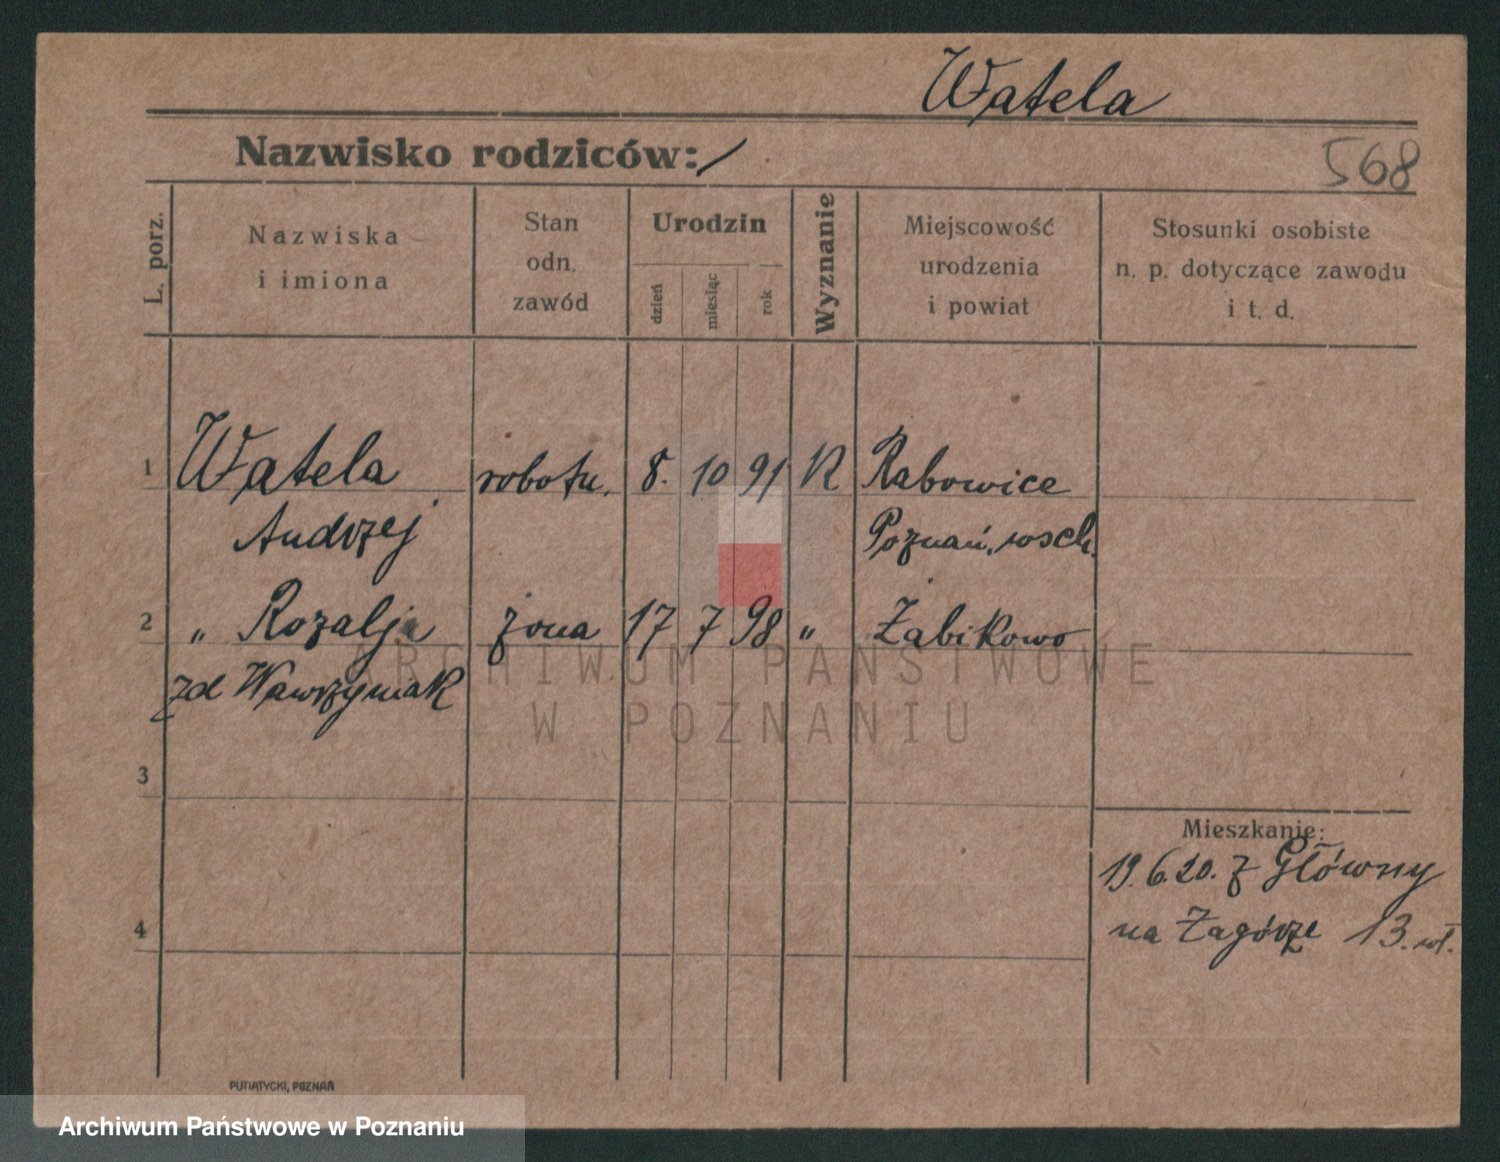 Watela
Nazwisko rodziców: /
568
L. porz.
Nazwiska
i imiona
Stan
odn.
zawód
Urodzin
dzień
miesiąc
rok
Wyznanie
Miejscowość
urodzenia
i powiat
Stosunki osobiste
n. p. dotyczące zawodu
i t. d.
1 Watela robotn. 8. 10 91 K Rabowice
Andrzej Poznań, wsch.
2 " Rozalja żona 17 7 98 " Żabikowo
zd Wawrzyniak
3
Mieszkanie:
19.6.20. z Główny
4 na Zagórze 13. wł.
ARCHIWUM PAŃSTWOWE
W POZNANIU
PUTIATYCKI, POZNAŃ
Archiwum Państwowe w Poznaniu